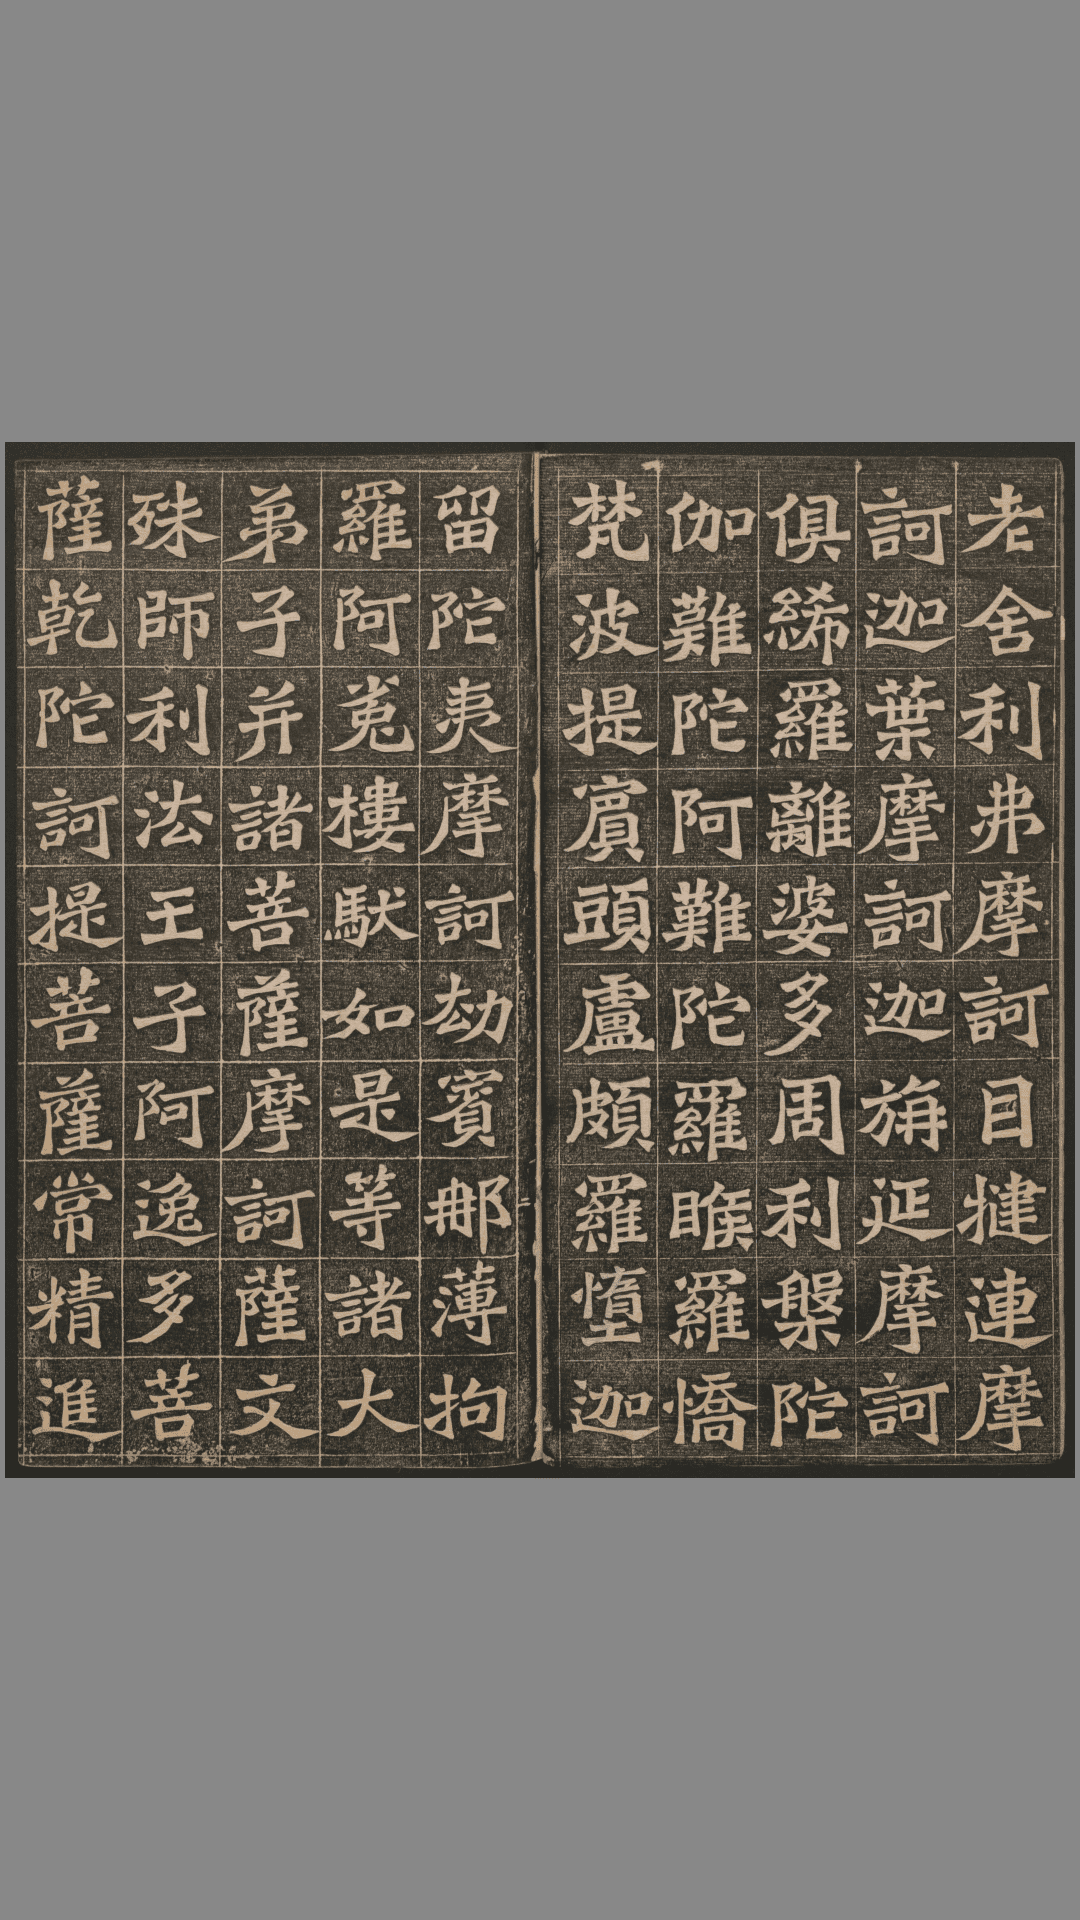 老舍利弗摩訶目揵連摩
訶迦葉摩訶迦旃延摩訶
俱絺羅離婆多周利槃陀
伽難陀阿難陀羅睺羅憍
梵波提賓頭盧頗羅墮迦
留陀夷摩訶劫賓那薄拘
羅阿㝹樓馱如是等諸大
弟子并諸菩薩摩訶薩文
殊師利法王子阿逸多菩
薩乾陀訶提菩薩常精進